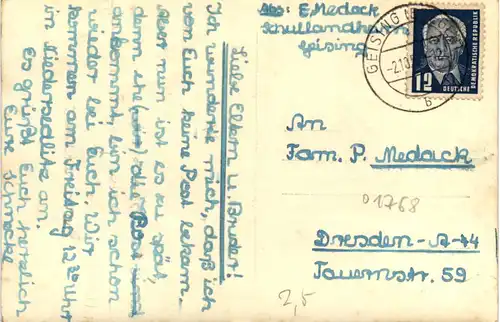 Liebe Eltern u. Bruder!
Ich wunderte mich, daß ich
von Euch keine Post bekam.
Aber nun ist es zu spät,
denn ehe die Post
ankommt, bin ich schon
wieder bei Euch. Wir
kommen am Freitag 12 30 Uhr
in Niedersedlitz an.
Es grüßt Euch herzlich
Eure Schnecke
Abs: E. Medack
Schullandheim
Geising
GEISING
-2.10.5
b
12
DEUTSCHE
DEMOKRATISCHE REPUBLIK
An
Fam. P. Medack
D1768
Dresden-A-44
Tauernstr. 59
2,5